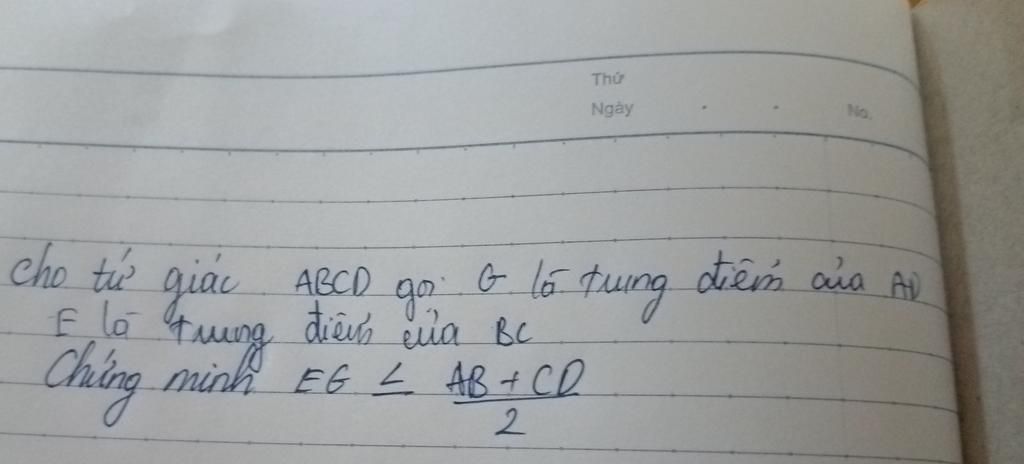 Thứ
Ngày . . No.
Cho tứ giác ABCD gọi G là trung điểm của AD
E là trung điểm của BC
Chứng minh EG ≤ AB + CD
2